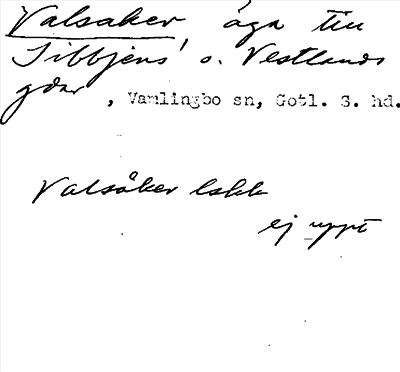 Valsaker, äga till
Sibbjens' o. Vestlands
gdar, Vamlingbo sn, Gotl. S. hd.
Valsåker lskk
ej uppt